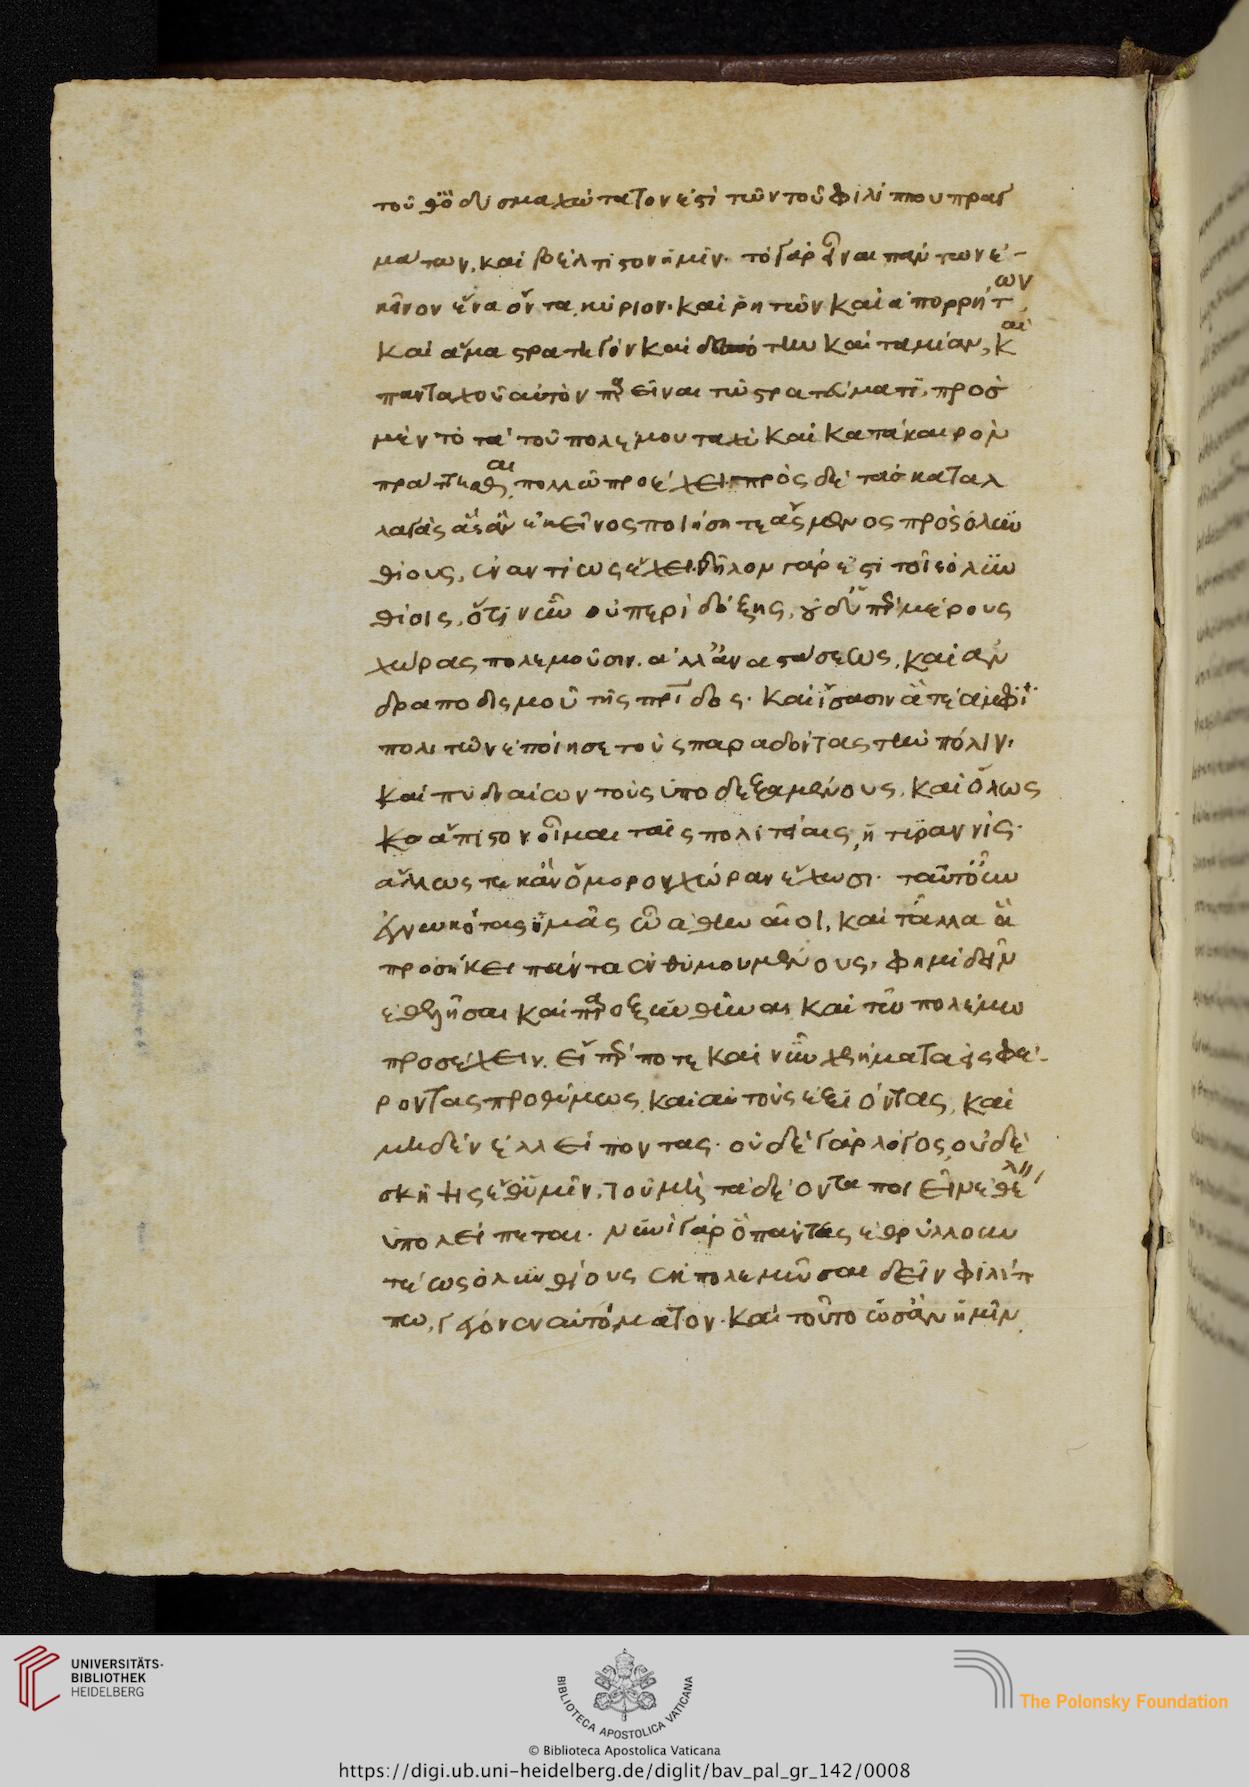 τοῦθ' ὃ δυσμαχώτατον ἐστὶ τῶν τοῦ φιλίππου πραγ
μάτων, καὶ βέλτιστον ἡμῖν. τὸ γὰρ εἶναι πάντων ἐ-
κεῖνον ἕνα ὄντα κύριον. καὶ ῥητῶν καὶ ἀπορρήτων,
καὶ ἅμα στρατηγὸν καὶ δεσπότην καὶ ταμίαν, καὶ
πανταχοῦ αὐτὸν παρεῖναι τῷ στρατεύματι, πρὸς
μὲν τὸ τὰ τοῦ πολέμου ταχὺ καὶ κατὰ καιρὸν
πράττεσθαι, πολλῷ προέχει πρὸς δὲ τὰς καταλ
λαγὰς ἃς ἂν ἐκεῖνος ποιήσητε ἄσμενος πρὸς ὀλυν
θίους, ἐναντίως ἔχει δῆλον γάρ ἐστι τοῖς ὀλυν
θίοις, ὅτι νῦν οὐ περὶ δόξης, οὐδ' ὑπὲρ μέρους
χώρας πολεμοῦσιν. ἀλλ' ἀναστάσεως, καὶ ἀν
δραποδισμοῦ τῆς πατρίδος. καὶ ἴσασιν ἅ τε ἀμφι
πολιτῶν ἐποίησε τοὺς παραδόντας τὴν πόλιν.
καὶ πυδναίων τοὺς ὑποδεξαμένους, καὶ ὅλως
ἄπιστον οἶμαι ταῖς πολιτείαις, ἡ τυραννὶς.
ἄλλως τε κἂν ὅμορον χώραν ἔχωσι. ταῦτ' οὖν
ἐγνωκότας ὑμᾶς ὦ ἀθηναῖοι, καὶ τἄλλα ἃ
προσήκει πάντα ἐνθυμουμένους, φημὶ δεῖν
ἐθελῆσαι καὶ παροξυνθῆναι καὶ τῷ πολέμῳ
προσέχειν. εἴπερ ποτὲ καὶ νῦν χρήματα εἰσφέ-
ροντας προθύμως καὶ αὐτοὺς ἐξιόντας, καὶ
μηδὲν ἐλλείποντας. οὐδὲ γὰρ λόγος οὐδὲ
σκῆψις ἔθ' ὑμῖν, τοῦ μὴ τὰ δέοντα ποιεῖν ἐθέλ
ὑπολείπεται. νυνὶ γὰρ ὃ πάντες ἐθρύλλουν
τέως ὀλυνθίους ἐκπολεμῶσαι δεῖν φιλίπ
πῳ, γέγονεν αὐτόματον. καὶ τοῦτο ὡς ἂν ἡμῖν
UNIVERSITÄTS-
BIBLIOTHEK
HEIDELBERG
BIBLIOTECA APOSTOLICA VATICANA
The Polonsky Foundation
© Biblioteca Apostolica Vaticana
https://digi.ub.uni-heidelberg.de/diglit/bav_pal_gr_142/0008